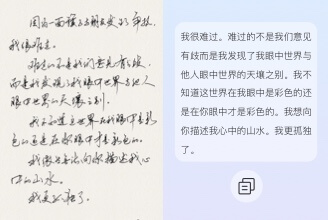 因为一面
我很难过。
难过的不是我们意见有歧,
而是我发现了我眼中世界与他人
眼中世界的天壤之别。
我不知道这世界在我眼中是彩
色的还是在你眼中才是彩色的。
我想向你描述我心
中的山水。
我更孤独了。
我很难过。难过的不是我们意见
有歧而是我发现了我眼中世界与
他人眼中世界的天壤之别。我不
知道这世界在我眼中是彩色的还
是在你眼中才是彩色的。我想向
你描述我心中的山水。我更孤独
了。